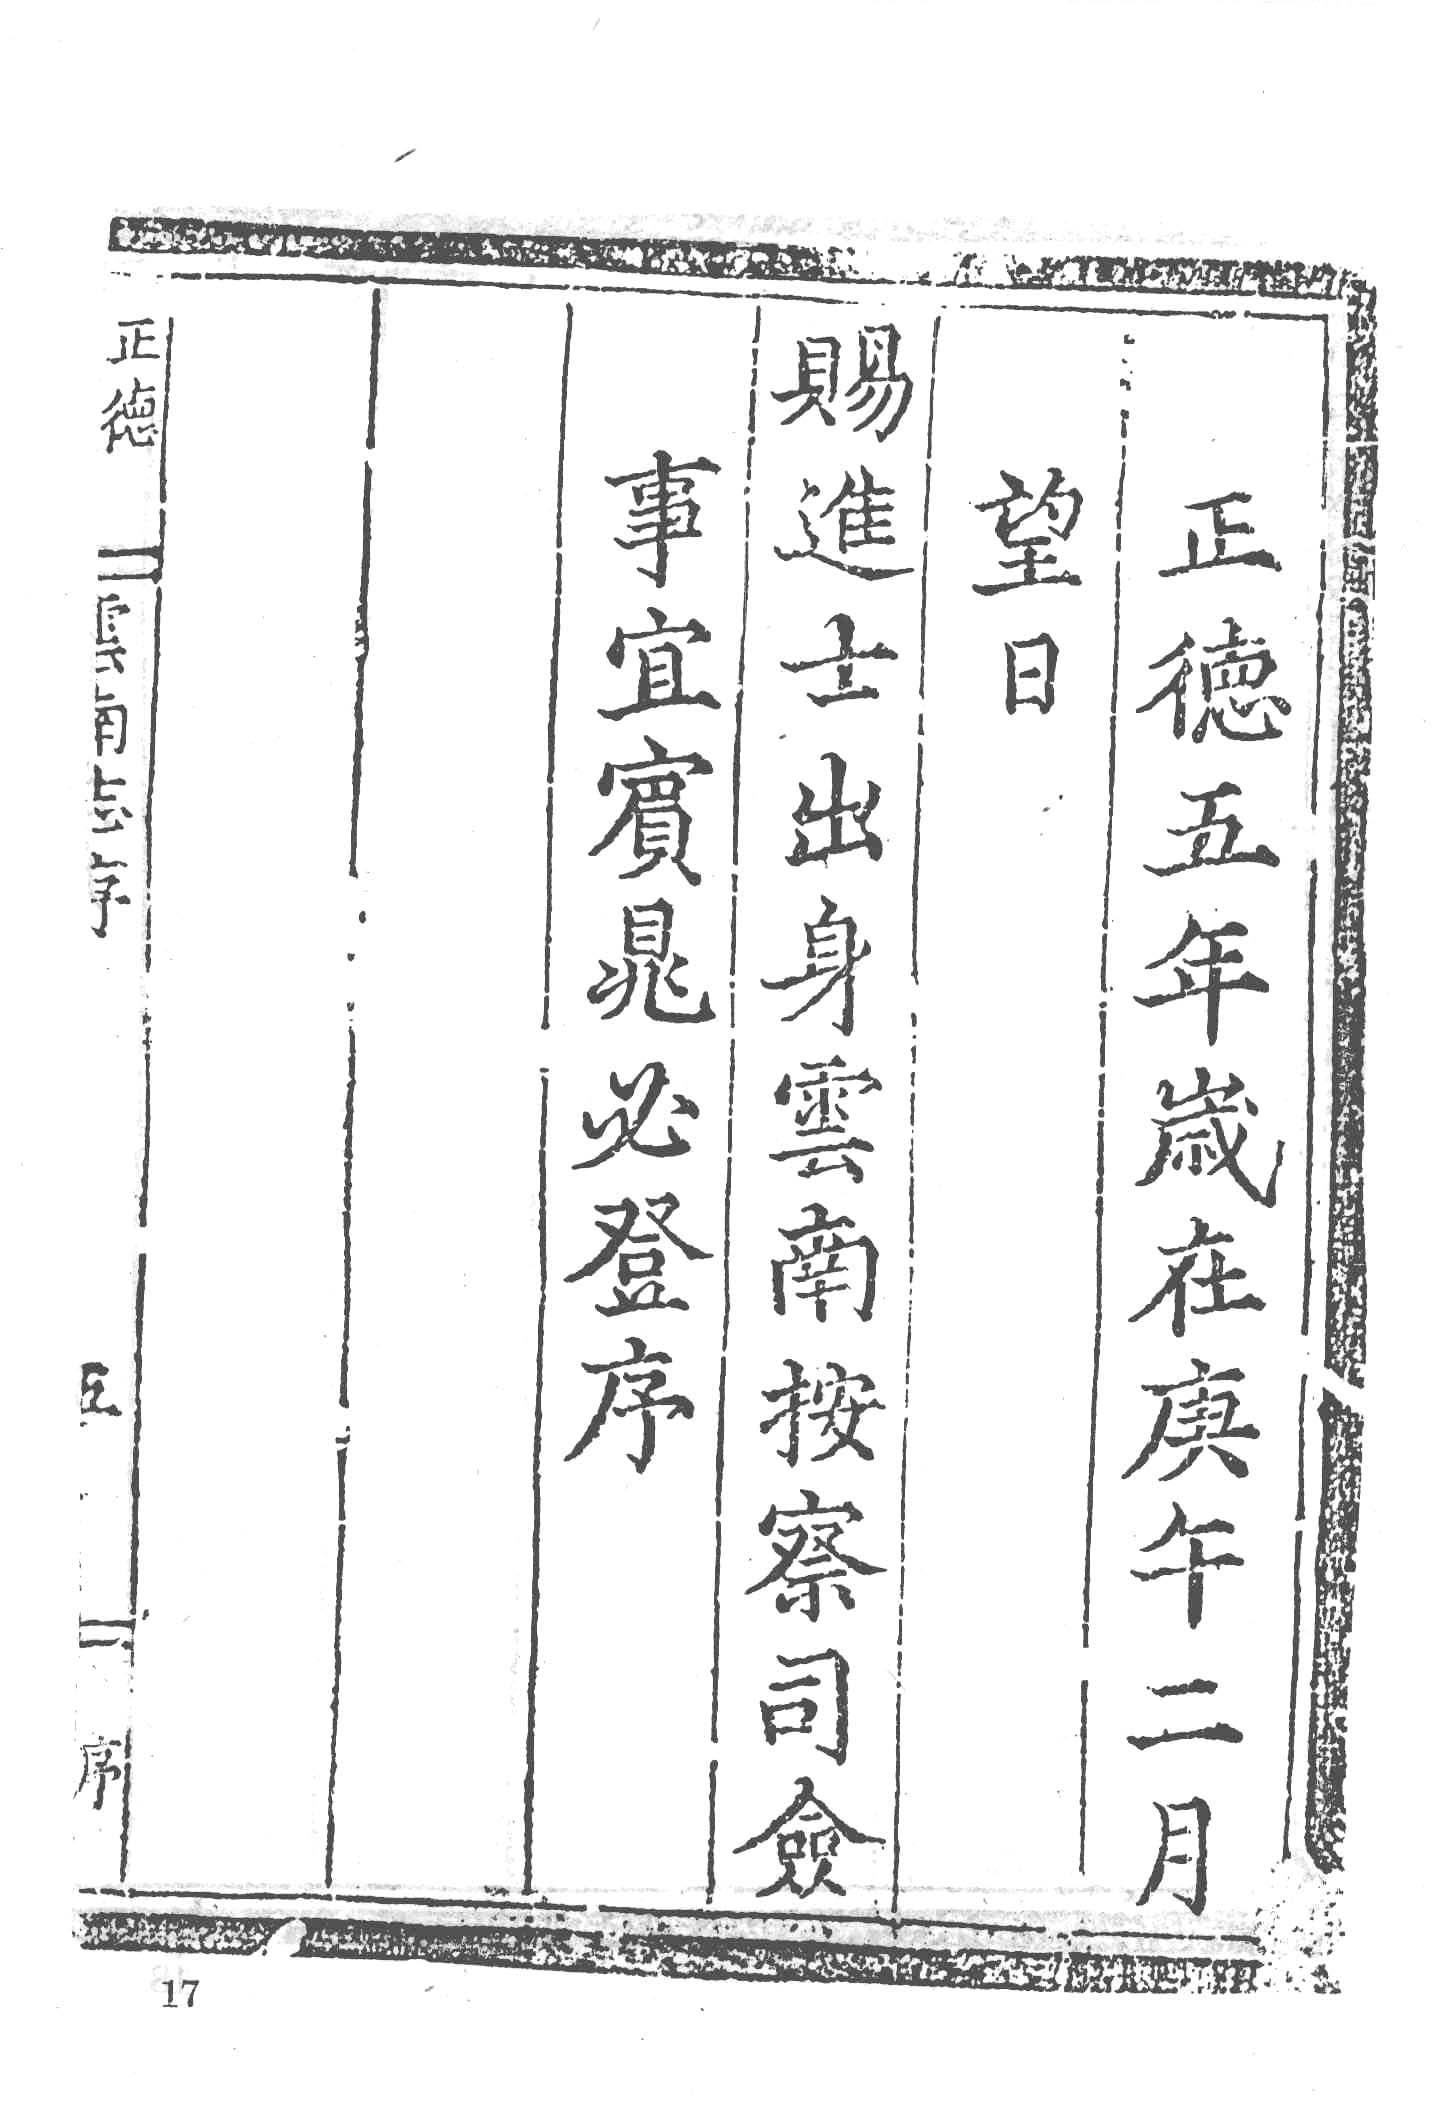 正德五年歲在庚午二月
望日
賜進士出身雲南按察司僉
事宜賓晁必登序
正德　雲南志序　五　序
17